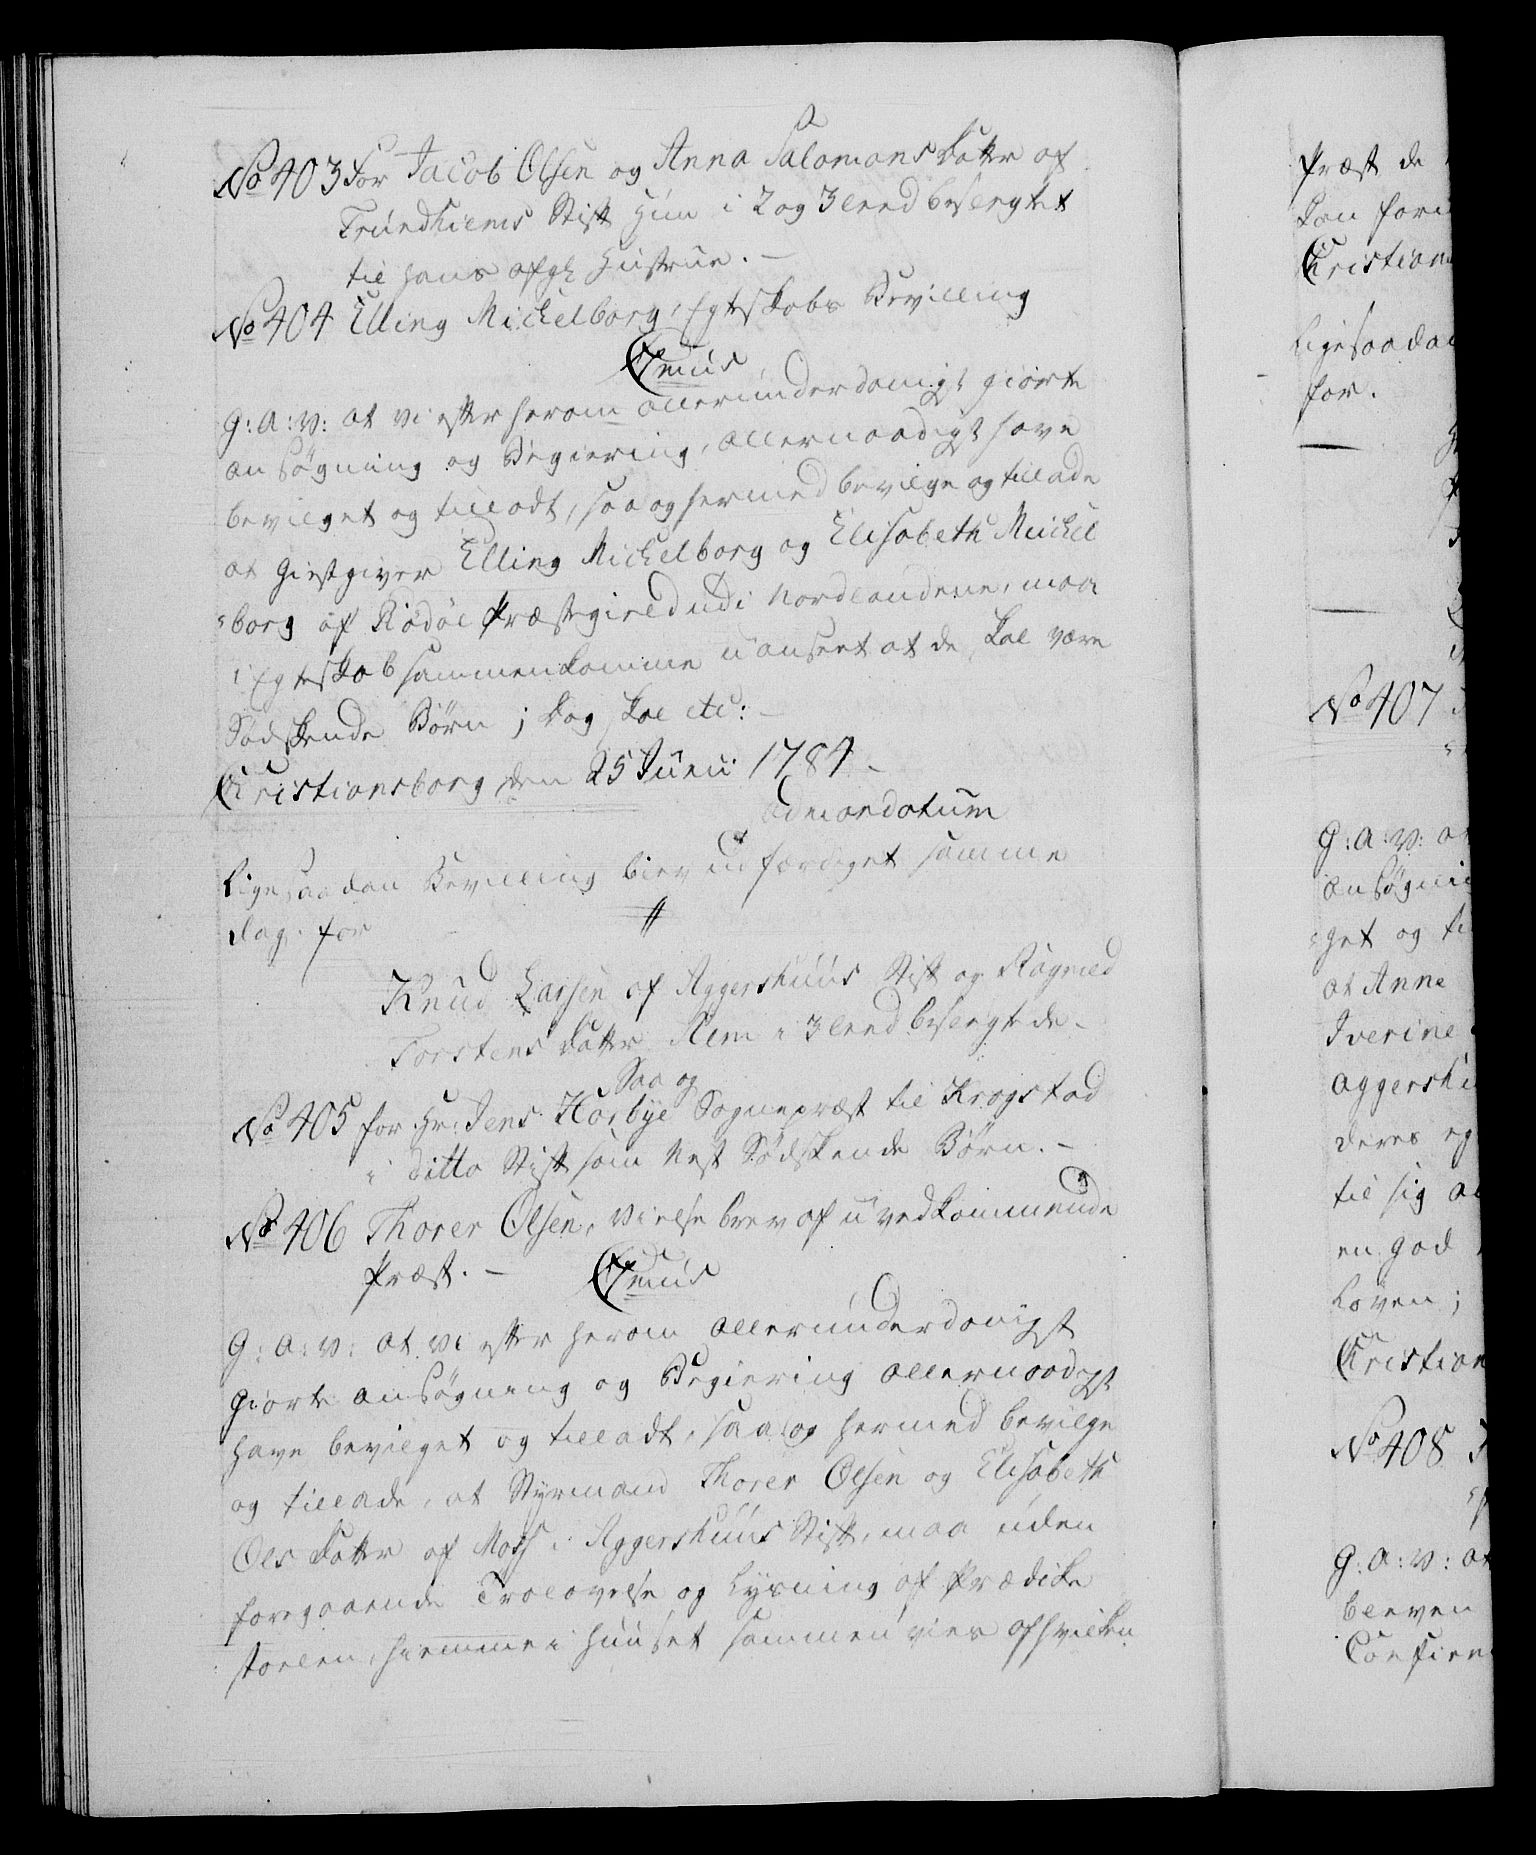 No 403 For Jacob Olsen og Anna Salomons Datter af
Trundhiems Stift Hun i 2 og 3 leed beslægtet
til hans afgl Hustrue. –
No 404 Elling Mickelborg, Egteskabs Bevilling
C7mus
G: A: V: at vi efter herom allerunderdanigst giorte
ansøgning og Begiering, allernaadigst have
bevilget og tilladt, saa og hermed bevilge og tillade
at Giestgiver Elling Mickelborg og Elisabeth Mickel
borg af Rødøe Præstegield udi Nordlandene, maa
i Egteskab sammenkomme uanseet at de skal være
Sødskende Børn; dog skal etc: –
Christiansborg den 25 Junii 1784 –
Ad mandatum
Ligesaadan Bevilling blev udfærdiget samme
dag for
Knud Larsen af Aggershuus Stift og Ragnild
Torstens datter Rem i 3 leed beslegtede –
Saa og
No 405 for Hr: Jens Korbye Sognepræst til Krogstad
i ditto Stift som Nest Sødskende Børn. –
No 406 Thorer Olsen, Vielsebrev af uvedkommende
Præst. – C7mus
G: A: V: at vi efter herom allerunderdanigst
giorte ansøgning og Begiering allernaadigst
have bevilget og tilladt, saa og hermed bevilge
og tillade, at Styrmand Thorer Olsen og Elisabeth
Ols datter af Moss i Aggershuus Stift, maa uden
foregaaende Trolovelse og Lysning af Prædike
stoelen, hiemme i Huuset sammenvies af hvilken
Præst de
kan for
Christian
Ligesaada
for.
No 407
G: A: V: at
ansøgni
get og ti
at Anne
Iverine
Aggershu
deres eg
til sig a
en god
Loven;
Christian
No 408
G: A: V: at
bleven
Confirm